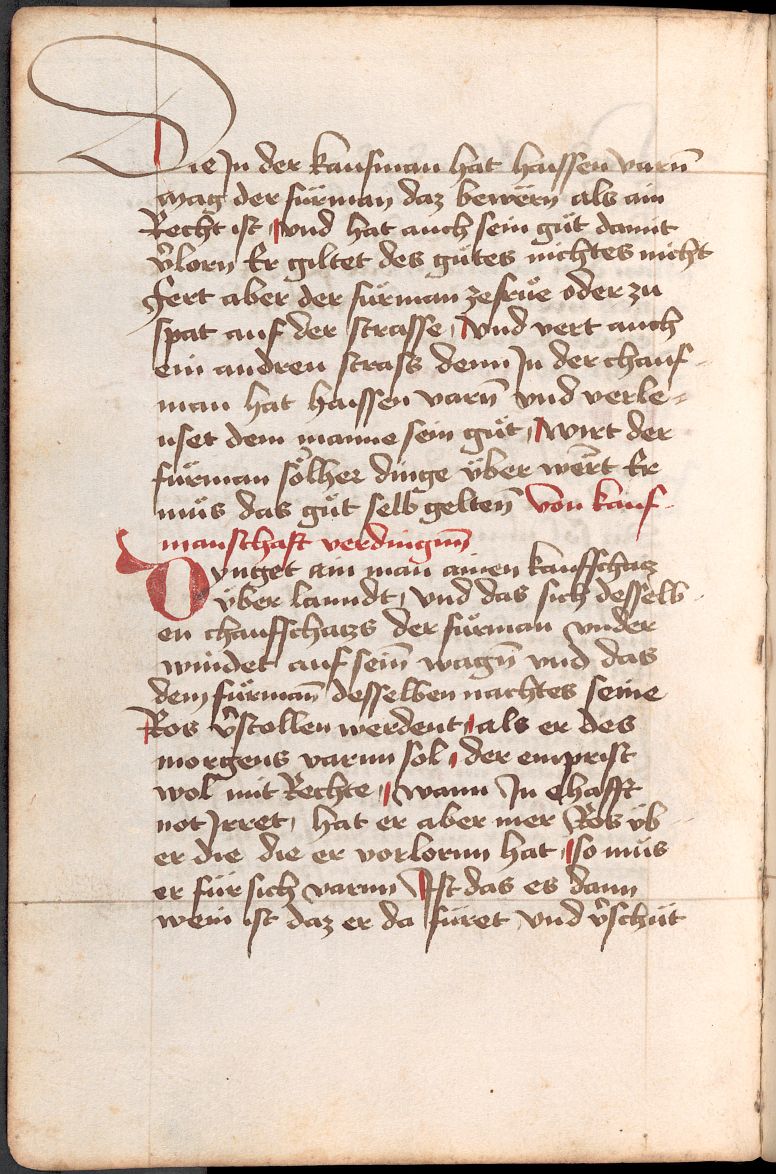 Die In der kaufman hat haissen varn̄
mag der fůrman daz bewern als ain
Recht ist vnd hat auch sein gůt damit
v̄lorn Er giltet des gůtes nichtes nicht
fert aber der fůrman zefrůe oder zu
spat auf der strasse, vnd vert auch
ein andren strass denn In der chauf-
man hat haissen varn̄ vnd verle-
uset dem manne sein gůt, wirt der
fůrman sölher dinge über wert Er
můs das gůt selb gelten̄ Von kauf-
manschaft verdingnn̄
Dynget ain man ainen kaufschacz
über lanndt, vnd das sich desselb-
en chaufschaczs der fůrman vnder
windet auf sein̄ wagn̄ vnd das
dem fůrman̄ desselben nachtes seine
Ros v̄stollen werdent, als er des
morgens varnn sol, der emprist
wol mit Rechte, wann In ehafft
not Irret, hat er aber mer Ros üb-
er die die er vorlornn hat, so můs
er für sich varnn Ist das es dann
wein ist daz er da füret, vnd v̄schüt